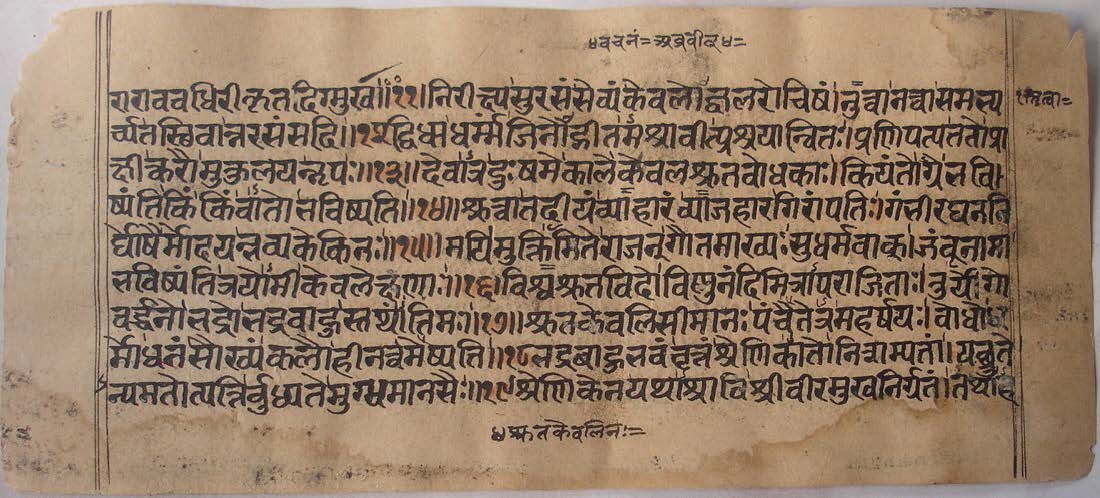 ४वचनं=अब्रवीत्४=
रारावबधिरीकृतदिग्मुखां॥११॥निरीक्ष्यसुरसंसेव्यंकेवलोज्ज्वलरोचिषं।नुत्वानत्वासमभ्य
र्च्यतस्थिवान्नरसंसदि॥१२॥द्विधाधर्म्मंजिनोद्गीतमश्रावीत्प्रश्रयान्वितः।प्रणिपत्यततोप्रा
क्षीत्करौमुकुलयन्नृपः॥१३॥देवात्रदुःषमेकालेकेवलश्रुतबोधकाः।कियंतोग्रेभवि
ष्यंतिकिंकिंवांतोभविष्यति॥१४॥श्रुत्वातदीयंव्याहारंव्याजहारगिरांपतिः।गंभीरघननि
र्घोषैर्मोदयन्भव्यकेकिनः॥१५॥मयिमुक्तिमितेराजन्गौतमाख्यःसुधर्मवाक्।जंबूनामा
भविष्यंतित्रयोमीकेवलेक्षणाः॥१६॥विश्वश्रुतविदोविष्णुनंदिमित्रापराजिताः।तुर्योगो
वर्द्धनोभद्रोभद्रबाहुस्तथांतिमः॥१७॥श्रुतकेवलिसीमानःपंचैतेत्रमहर्षयः।बोधोध
र्मोधनंसौख्यंकलौहीनत्वमेष्यति॥१८भद्रबाहुभवंवृत्तंश्रेणिकातोनिशम्यतां।यच्छ्रुते
न्यमतोत्पत्तिर्बुध्यतेमुग्धमानसैः॥१९श्रेणिकेनयथाश्राविश्रीवीरमुखनिर्गतं।तथाह
४श्रुतकेवलिनः=